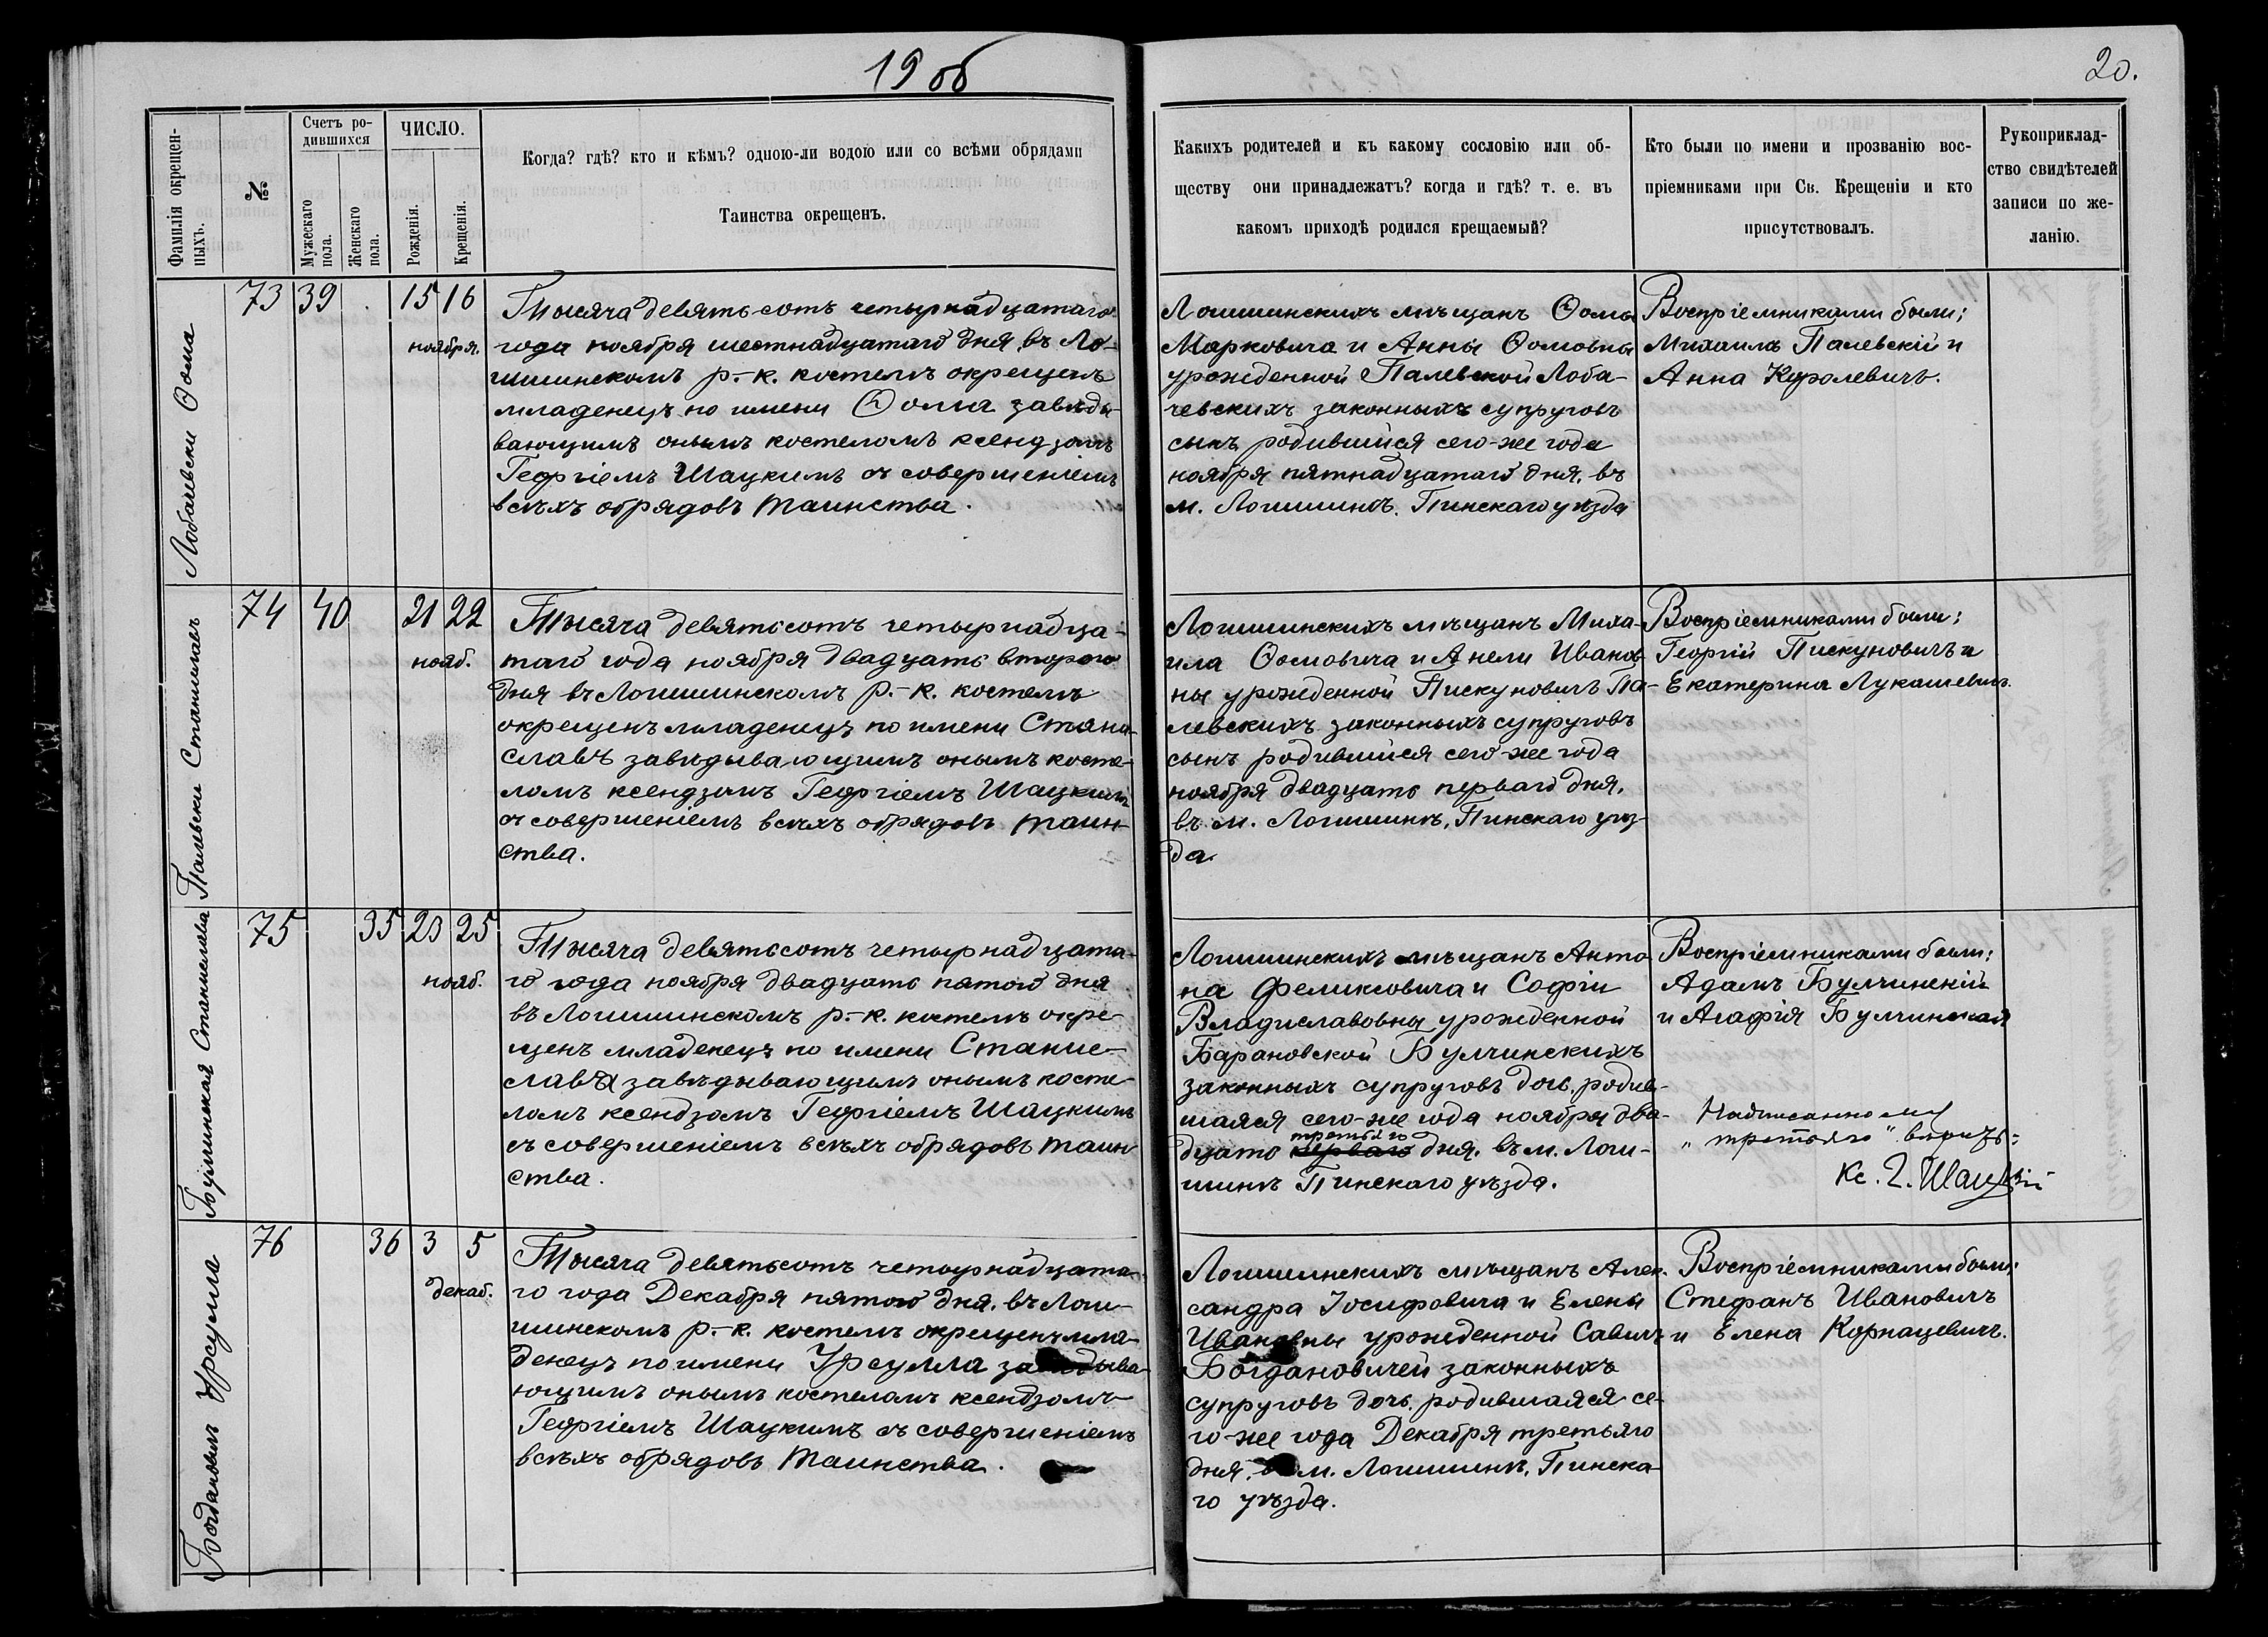 19об
20.
Фамилія окрещен-
ныхъ.
№
Счетъ ро-
дившихся
Мужескаго
пола.
Женскаго
пола.
ЧИСЛО.
Рожденія.
Крещенія.
Когда? гдѣ? кто и кѣмъ? одною-ли водою или со всѣми обрядами
Таинства окрещенъ.
Какихъ родителей и къ какому сословію или об-
ществу они принадлежатъ? когда и гдѣ? т. е. въ
какомъ приходѣ родился крещаемый?
Кто были по имени и прозванію вос-
пріемниками при Св. Крещеніи и кто
присутствовалъ.
Рукоприклад-
ство свидѣтелей
записи по же-
ланію.
Лобачевски Ѳома
73 39 15 16
ноября.
Тысяча девять-сотъ четырнадцатаго
года ноября шестнадцатаго дня въ Ло-
гишинскомъ р.-к. костелѣ окрещенъ
младенецъ по имени Ѳома завѣды-
вающимъ онымъ костеломъ ксендзомъ
Георгіемъ Шацкимъ съ совершеніемъ
всѣхъ обрядовъ таинства.
Логишинскихъ мѣщанъ Ѳомы
Марковича и Анны Ѳомовны
урожденной Палевской Лоба-
чевскихъ законныхъ супруговъ
сынъ, родившійся сего-же года
ноября пятнадцатаго дня, въ
м. Логишинѣ, Пинскаго уѣзда
Воспріемниками были;
Михаилъ Палевскій и
Анна Королевичъ.
Пальвски Станиславъ
74 40 21 22
нояб.
Тысяча девятьсотъ четырнадца-
таго года ноября двадцать второго
дня въ Логишинскомъ р.-к. костелѣ
окрещенъ младенецъ по имени Стани-
славъ завѣдывающимъ онымъ косте-
ломъ ксендзомъ Георгіемъ Шацкимъ
съ совершеніемъ всѣхъ обрядовъ таин-
ства.
Логишинскихъ мѣщанъ Миха-
ила Ѳомовича и Анели Иванов-
ны урожденной Пискуновичъ Па-
левскихъ законныхъ супруговъ
сынъ родившійся сего-же года
ноября двадцать перваго дня,
въ м. Логишинѣ, Пинскаго уѣз-
да.
Воспріемниками были;
Георгій Пискуновичъ и
Екатерина Лукашевичъ.
Булчинская Станислава
75 35 23 25
нояб.
Тысяча девятьсотъ четырнадцата-
го года ноября двадцать пятого дня
въ Логишинскомъ р.-к. костелѣ окре-
щенъ младенецъ по имени Станис-
лава завѣдывающимъ онымъ косте-
ломъ ксендзомъ Георгіемъ Шацкимъ
съ совершеніемъ всѣхъ обрядовъ таин-
ства.
Логишинскихъ мѣщанъ Анто-
на Феликсовича и Софіи
Владиславовны урожденной
Барановской Булчинскихъ
законныхъ супруговъ дочь, родив-
шаяся сего-же года ноября два-
третьяго
дцать перваго дня, въ м. Логи-
шинѣ Пинскаго уѣзда.
Воспріемниками были:
Адамъ Булчинскій
и Агафія Булчинская
Надписанному
„третьяго" вѣрить:
Кс. Г. Шацкій
Богдановичъ Урсулла
76 36 3 5
декаб.
Тысяча девятьсотъ четырнадцата-
го года Декабря пятого дня, въ Логи-
шинскомъ р.-к. костелѣ окрещенъ мла-
денецъ по имени Урсулла завѣдыва-
ющимъ онымъ костеломъ ксендзомъ
Георгіемъ Шацкимъ съ совершеніемъ
всѣхъ обрядовъ таинства.
Логишинскихъ мѣщанъ Алек-
сандра Іосифовича и Елены
Ивановны урожденной Савичъ
Богдановичей законныхъ
супруговъ дочь, родившаяся се-
го-же года Декабря третьяго
дня, въ м. Логишинѣ, Пинска-
го уѣзда.
Воспріемниками были:
Стефанъ Ивановичъ
и Елена Корнацевичъ.